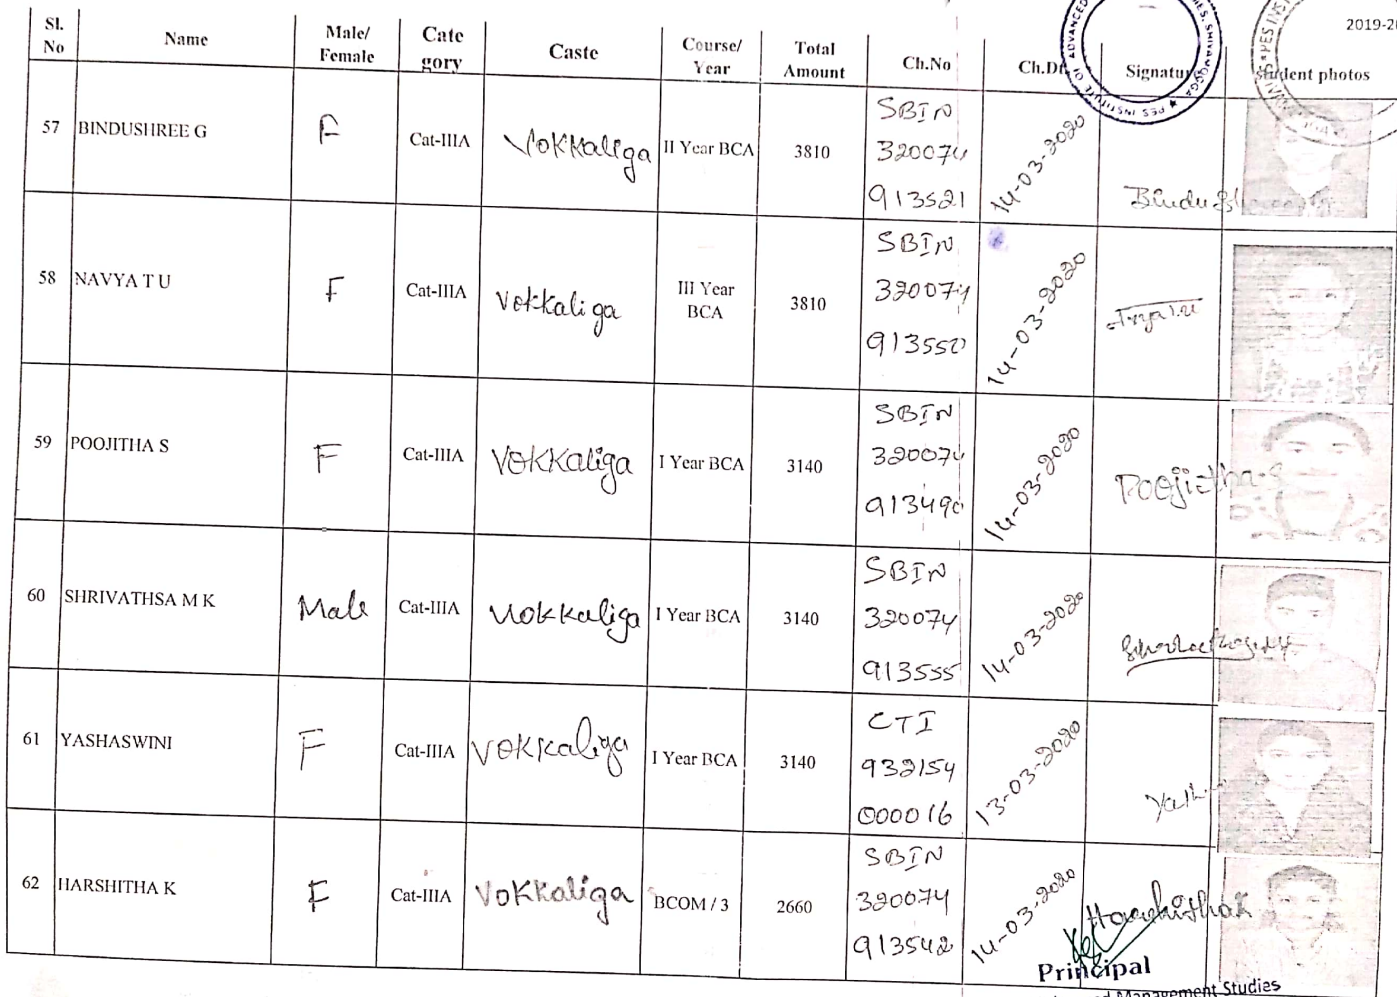 2019-20
Sl. No Name Male/ Female Cate gory Caste Course/ Year Total Amount Ch.No Ch.Dt Signatur student photos
PES INSTITUTE OF ADVANCED
IES, SHIVAMOGGA
PES INST
57 BINDUSHREE G F Cat-IIIA Vokkaliga II Year BCA 3810 SBIN 320074 913521 14-03-2020
58 NAVYA T U F Cat-IIIA Vokkaliga III Year BCA 3810 SBIN 320074 913550 14-03-2020
59 POOJITHA S F Cat-IIIA VOKKaliga I Year BCA 3140 SBIN 320074 913490 14-03-2020 Poojietha-S
60 SHRIVATHSA M K Male Cat-IIIA Vokkaliga I Year BCA 3140 SBIN 320074 913555 14-03-2020
61 YASHASWINI F Cat-IIIA VOKKaliga I Year BCA 3140 CTI 932154 000016 13-03-2020
62 HARSHITHA K F Cat-IIIA VOKKaliga BCOM / 3 2660 SBIN 320074 913542 14-03-2020 Harshitha K
Principal
Management Studies